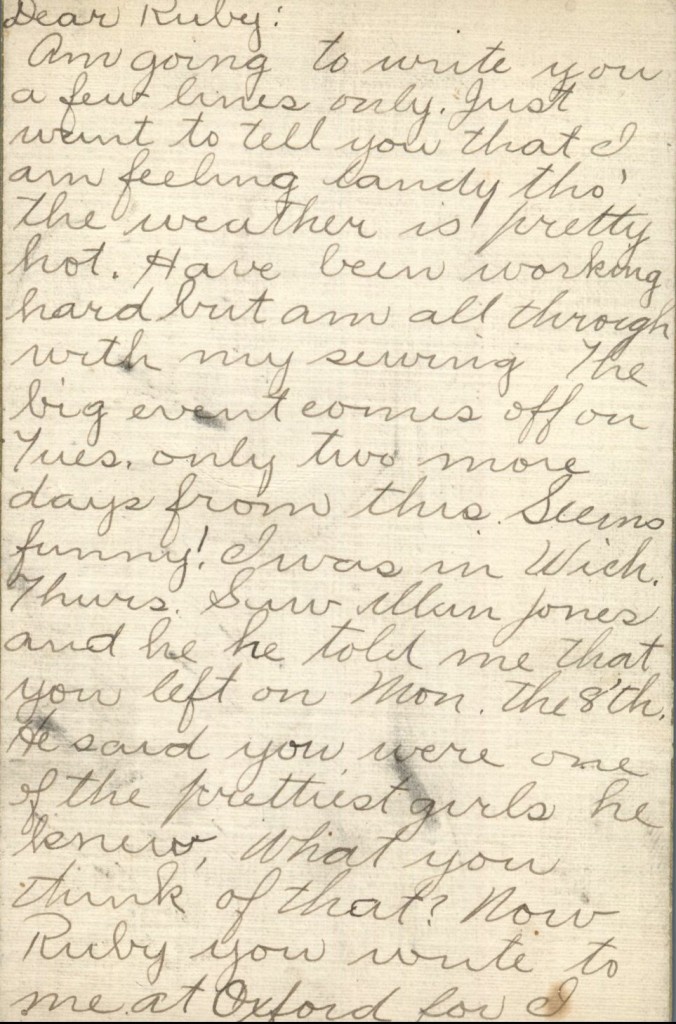 Dear Ruby:
Am going to write you
a few lines only. Just
want to tell you that I
am feeling dandy tho'
the weather is pretty
hot. Have been working
hard but am all through
with my sewing The
big event comes off on
Tues. only two more
days from this. Seems
funny! I was in Wich.
Thurs. Saw Allan Jones
and he he told me that
you left on Mon. the 8'th.
He said you were one
of the prettiest girls he
knew, What you
think of that? Now
Ruby you write to
me at Oxford for I